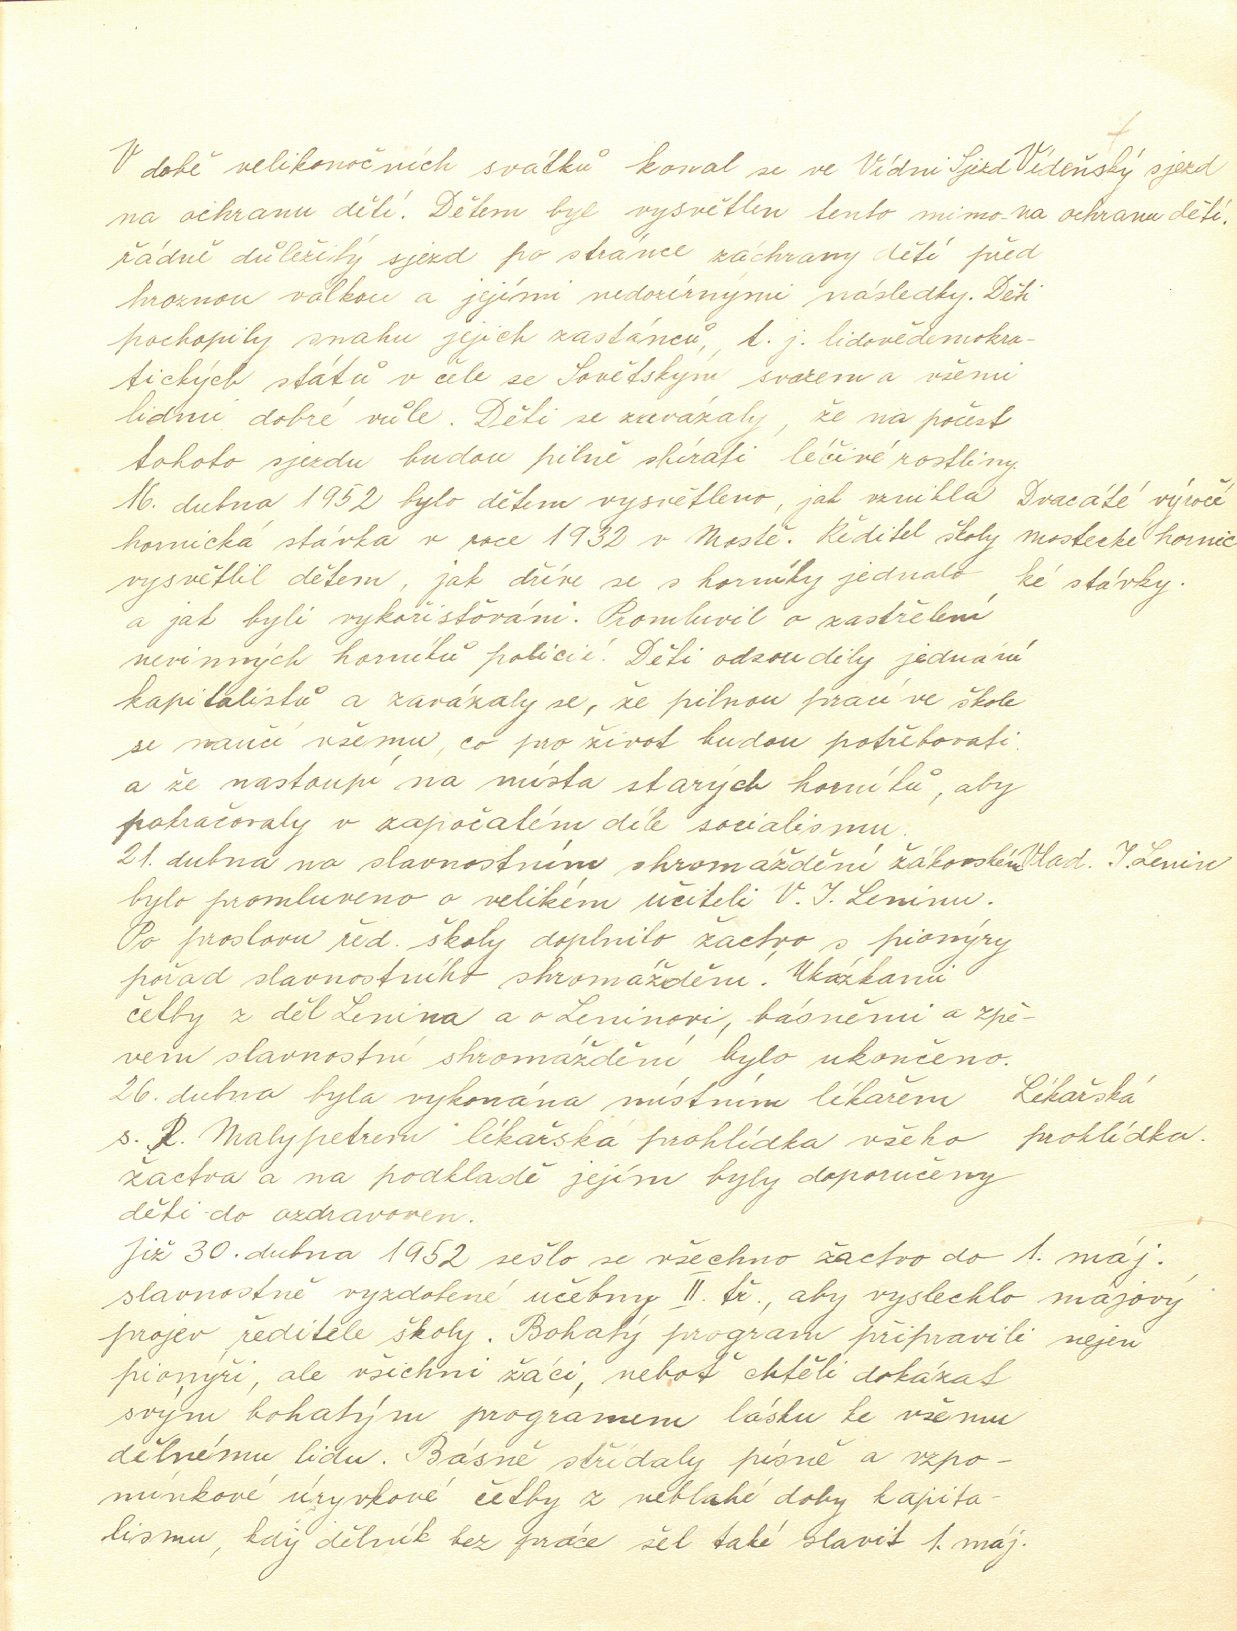 V době velikonočních svátků konal se ve Vídni Sjezd Vídeňský sjezd
na ochranu dětí. Dětem byl vysvětlen tento mimo- na ochranu dětí.
řádně důležitý sjezd po stránce záchrany dětí před
hroznou válkou a jejími nedozírnými následky. Děti
pochopily snahu jejich zastánců, t. j. lidovědemokra-
tických států v čele se Sovětským svazem a všemi
lidmi dobré vůle. Děti se zavázaly, že na počest
tohoto sjezdu budou pilně sbírati léčivé rostliny.
16. dubna 1952 bylo dětem vysvětleno, jak vznikla Dvacáté výročí
hornická stávka v roce 1932 v Mostě. Ředitel školy mostecké hornic
vysvětlil dětem, jak dříve se s horníky jednalo ké stávky.
a jak byli vykořisťováni. Promluvil o zastřelení
nevinných horníků policií. Děti odsoudily jednání
kapitalistů a zavázaly se, že pilnou prací ve škole
se naučí všemu, co pro život budou potřebovati
a že nastoupí na místa starých horníků, aby
pokračovaly v započatém díle socialismu.
21. dubna na slavnostním shromáždění žákovském Vlad. I. Lenin
bylo promluveno o velikém učiteli V. I. Leninu.
Po proslovu řed. školy doplnilo žactvo s pionýry
pořad slavnostního shromáždění. Ukázkami
četby z děl Lenina a o Leninovi, básněmi a zpě-
vem slavnostní shromáždění bylo ukončeno.
26. dubna byla vykonána místním lékařem Lékařská
s. R. Malypetrem lékařská prohlídka všeho prohlídka.
žactva a na podkladě jejím byly doporučeny
děti do ozdravoven.
Již 30. dubna 1952 sešlo se všechno žactvo do 1. máj.
slavnostně vyzdobené učebny II. tř., aby vyslechlo májový
projev ředitele školy. Bohatý program připravili nejen
pionýři, ale všichni žáci, neboť chtěli dokázat
svým bohatým programem lásku ke všemu
dělnému lidu. Básně střídaly písně a vzpo-
mínkové úryvkové četby z neblahé doby kapita-
lismu, kdy dělník bez práce šel také slavit 1. máj.